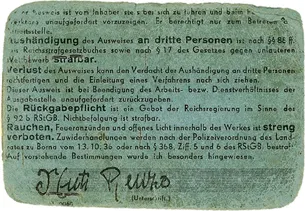 Ausweis ist vom Inhaber stets bei sich zu führen und beim
unaufgefordert vorzuzeigen. Er berechtigt nur zum Betreten
Arbeitsstelle.
Aushändigung des Ausweises an dritte Personen ist nach §§
Reichsstrafgesetzbuches sowie nach § 17 des Gesetzes gegen unlauteren
Wettbewerb strafbar.
Verlust des Ausweises kann den Verdacht der Aushändigung an dritte Personen
rechtfertigen und die Einleitung eines Verfahrens nach sich ziehen.
Dieser Ausweis ist bei Beendigung des Arbeits- bzw. Dienstverhältnisses der
Ausgabestelle unaufgefordert zurückzugeben.
Die Rückgabepflicht ist ein Gebot der Reichsregierung im Sinne des
§ 92 b RStGB. Nichtbefolgung ist strafbar.
Rauchen, Feueranzünden und offenes Licht innerhalb des Werkes ist streng
verboten. Zuwiderhandlungen werden nach der Polizeiverordnung des Land-
rates zu Borna vom 13. 10. 36 oder nach § 368, Ziff. 5 und 6 des RStGB. bestraft
Auf vorstehende Bestimmungen wurde ich besonders hingewiesen.
(Unterschrift.)